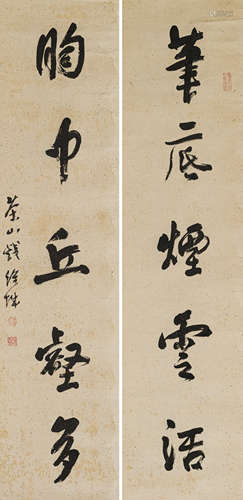 筆底煙雲活
胸中丘壑多
茶山錢維城